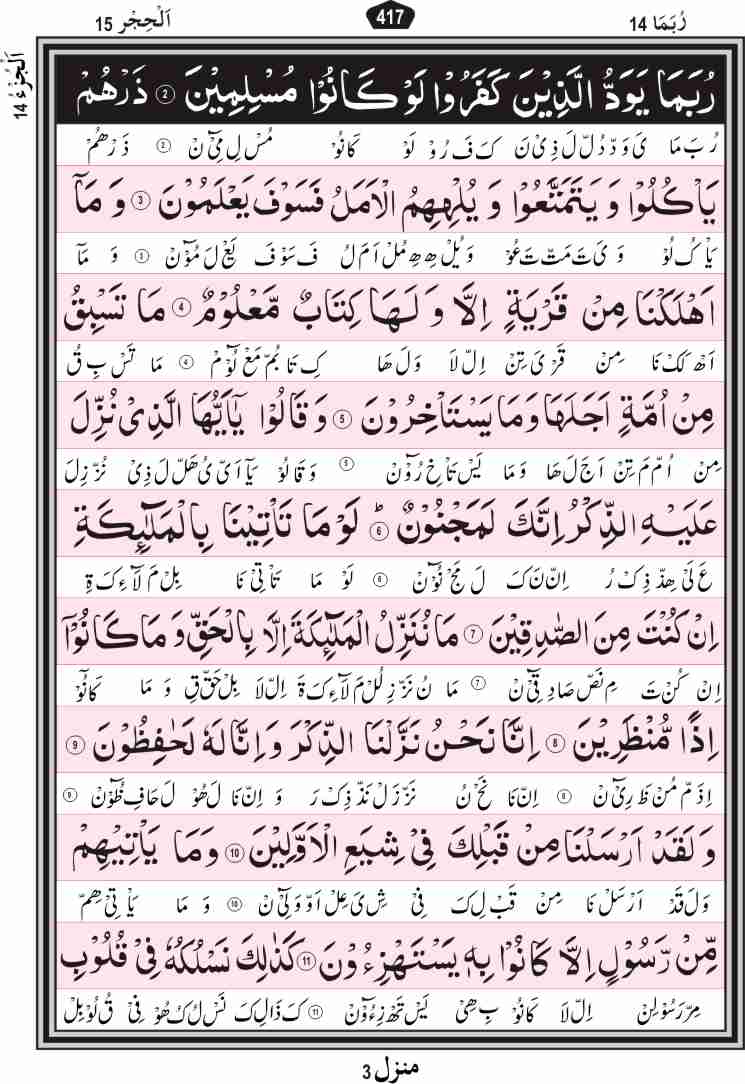 رُبَمَا 14
417
اَلْحِجْر 15
اَلْجُزْءُ 14
رُبَمَا يَوَدُّ الَّذِيْنَ كَفَرُوْا لَوْ كَانُوْا مُسْلِمِيْنَ ② ذَرْهُمْ
رُبَ مَا يَ وَ دْ دُلْ لَ ذِىْ نَ كَ فَ رُوْ لَوْ كَانُوْ مُسْ لِ مِىْٓ نْ ② ذَرْهُمْ
يَاْكُلُوْا وَ يَتَمَتَّعُوْا وَ يُلْهِهِمُ الْاَمَلُ فَسَوْفَ يَعْلَمُوْنَ ③ وَ مَاۤ
يَاْ كُ لُوْ وَ ىَ تَ مَتْ تَ عُوْ وَ يُلْ هِ هِ مُلْ اَ مَ لُ فَ سَوْ فَ يَعْ لَ مُوْٓنْ ③ وَ مَاۤ
اَهْلَكْنَا مِنْ قَرْيَةٍ اِلَّا وَ لَهَا كِتَابٌ مَّعْلُوْمٌ ④ مَا تَسْبِقُ
اَهْ لَكْ نَا مِنْ قَرْ ىَ تِنْ اِلْ لَا وَ لَ هَا كِ تَا بُمْ مَعْ لُوْٓمْ ④ مَا تَسْ بِ قُ
مِنْ اُمَّةٍ اَجَلَهَا وَمَا يَسْتَاْخِرُوْنَ ⑤ وَ قَالُوْا يٰۤاَيُّهَا الَّذِىْ نُزِّلَ
مِنْ اُمْ مَ تِنْ اَ جَ لَ هَا وَ مَا يَسْ تَاْ خِ رُوْٓنْ ⑤ وَ قَا لُوْ يَاۤ اَىْ ىُ هَلْ لَ ذِىْ نُزْ زِ لَ
عَلَيْهِ الذِّكْرُ اِنَّكَ لَمَجْنُوْنٌ ⑥ ؕ لَوْ مَا تَاْتِيْنَا بِالْمَلٰٓئِكَةِ
عَ لَىْ هِذْ ذِكْ رُ اِنْ نَ كَ لَ مَجْ نُوْٓنْ ⑥ لَوْ مَا تَاْ تِىْ نَا بِلْ مَ لَآ ءِ كَ ةِ
اِنْ كُنْتَ مِنَ الصّٰدِقِيْنَ ⑦ مَا نُنَزِّلُ الْمَلٰٓئِكَةَ اِلَّا بِالْحَقِّ وَ مَا كَانُوْۤا
اِنْ كُنْ تَ مِ نَصْ صَادِ قِىْٓ نْ ⑦ مَا نُ نَزْ زِ لُلْ مَ لَآ ءِ كَ ةَ اِلْ لَا بِلْ حَقْ قِ وَ مَا كَانُوْۤ
اِذًا مُّنْظَرِيْنَ ⑧ اِنَّا نَحْنُ نَزَّلْنَا الذِّكْرَ وَ اِنَّا لَهٗ لَحٰفِظُوْنَ ⑨
اِذَ مْ مُنْ ظَ رِىْٓ نْ ⑧ اِنْ نَا نَحْ نُ نَزْ زَلْ نَذْ ذِكْ رَ وَ اِنْ نَا لَ هُوْ لَ حَافِ ظُوْٓنْ ⑨
وَ لَقَدْ اَرْسَلْنَا مِنْ قَبْلِكَ فِىْ شِيَعِ الْاَوَّلِيْنَ ⑩ وَ مَا يَاْتِيْهِمْ
وَ لَ قَدْ اَرْ سَلْ نَا مِنْ قَبْ لِ كَ فِىْ شِ ىَ عِلْ اَوْ وَ لِىْٓ نْ ⑩ وَ مَا يَاْ تِىْ هِمْ
مِّنْ رَّسُوْلٍ اِلَّا كَانُوْا بِهٖ يَسْتَهْزِءُوْنَ ⑪ كَذٰلِكَ نَسْلُكُهٗ فِىْ قُلُوْبِ
مِرْ رَسُوْ لِنْ اِلْ لَا كَانُوْ بِ هِىْ يَسْ تَهْ زِ ءُوْٓنْ ⑪ كَ ذَالِ كَ نَسْ لُ كُ هُوْ فِىْ قُ لُوْ بِلْ
منزل 3